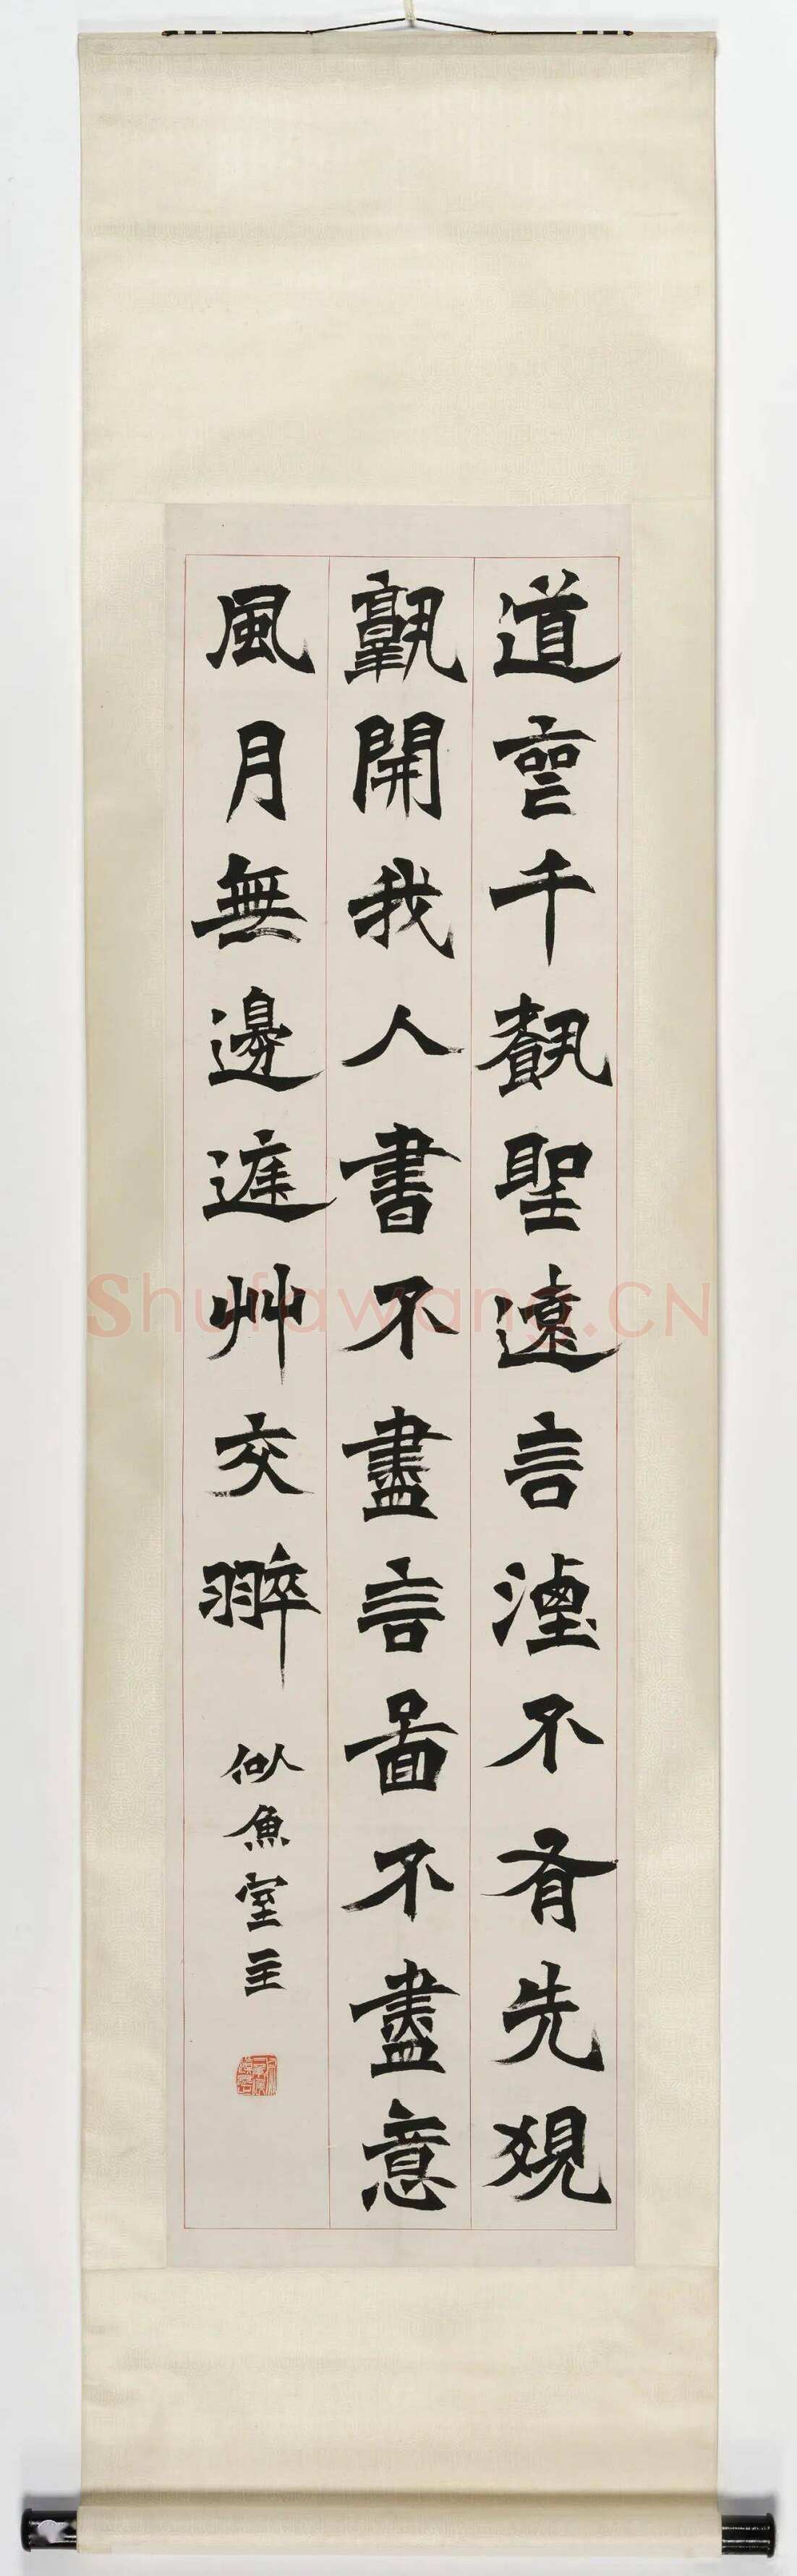 道喪千載聖遠言湮不有先覺
孰開我人書不盡言圖不盡意
風月無邊庭艸交翠
似魚室主
Shufawang.CN